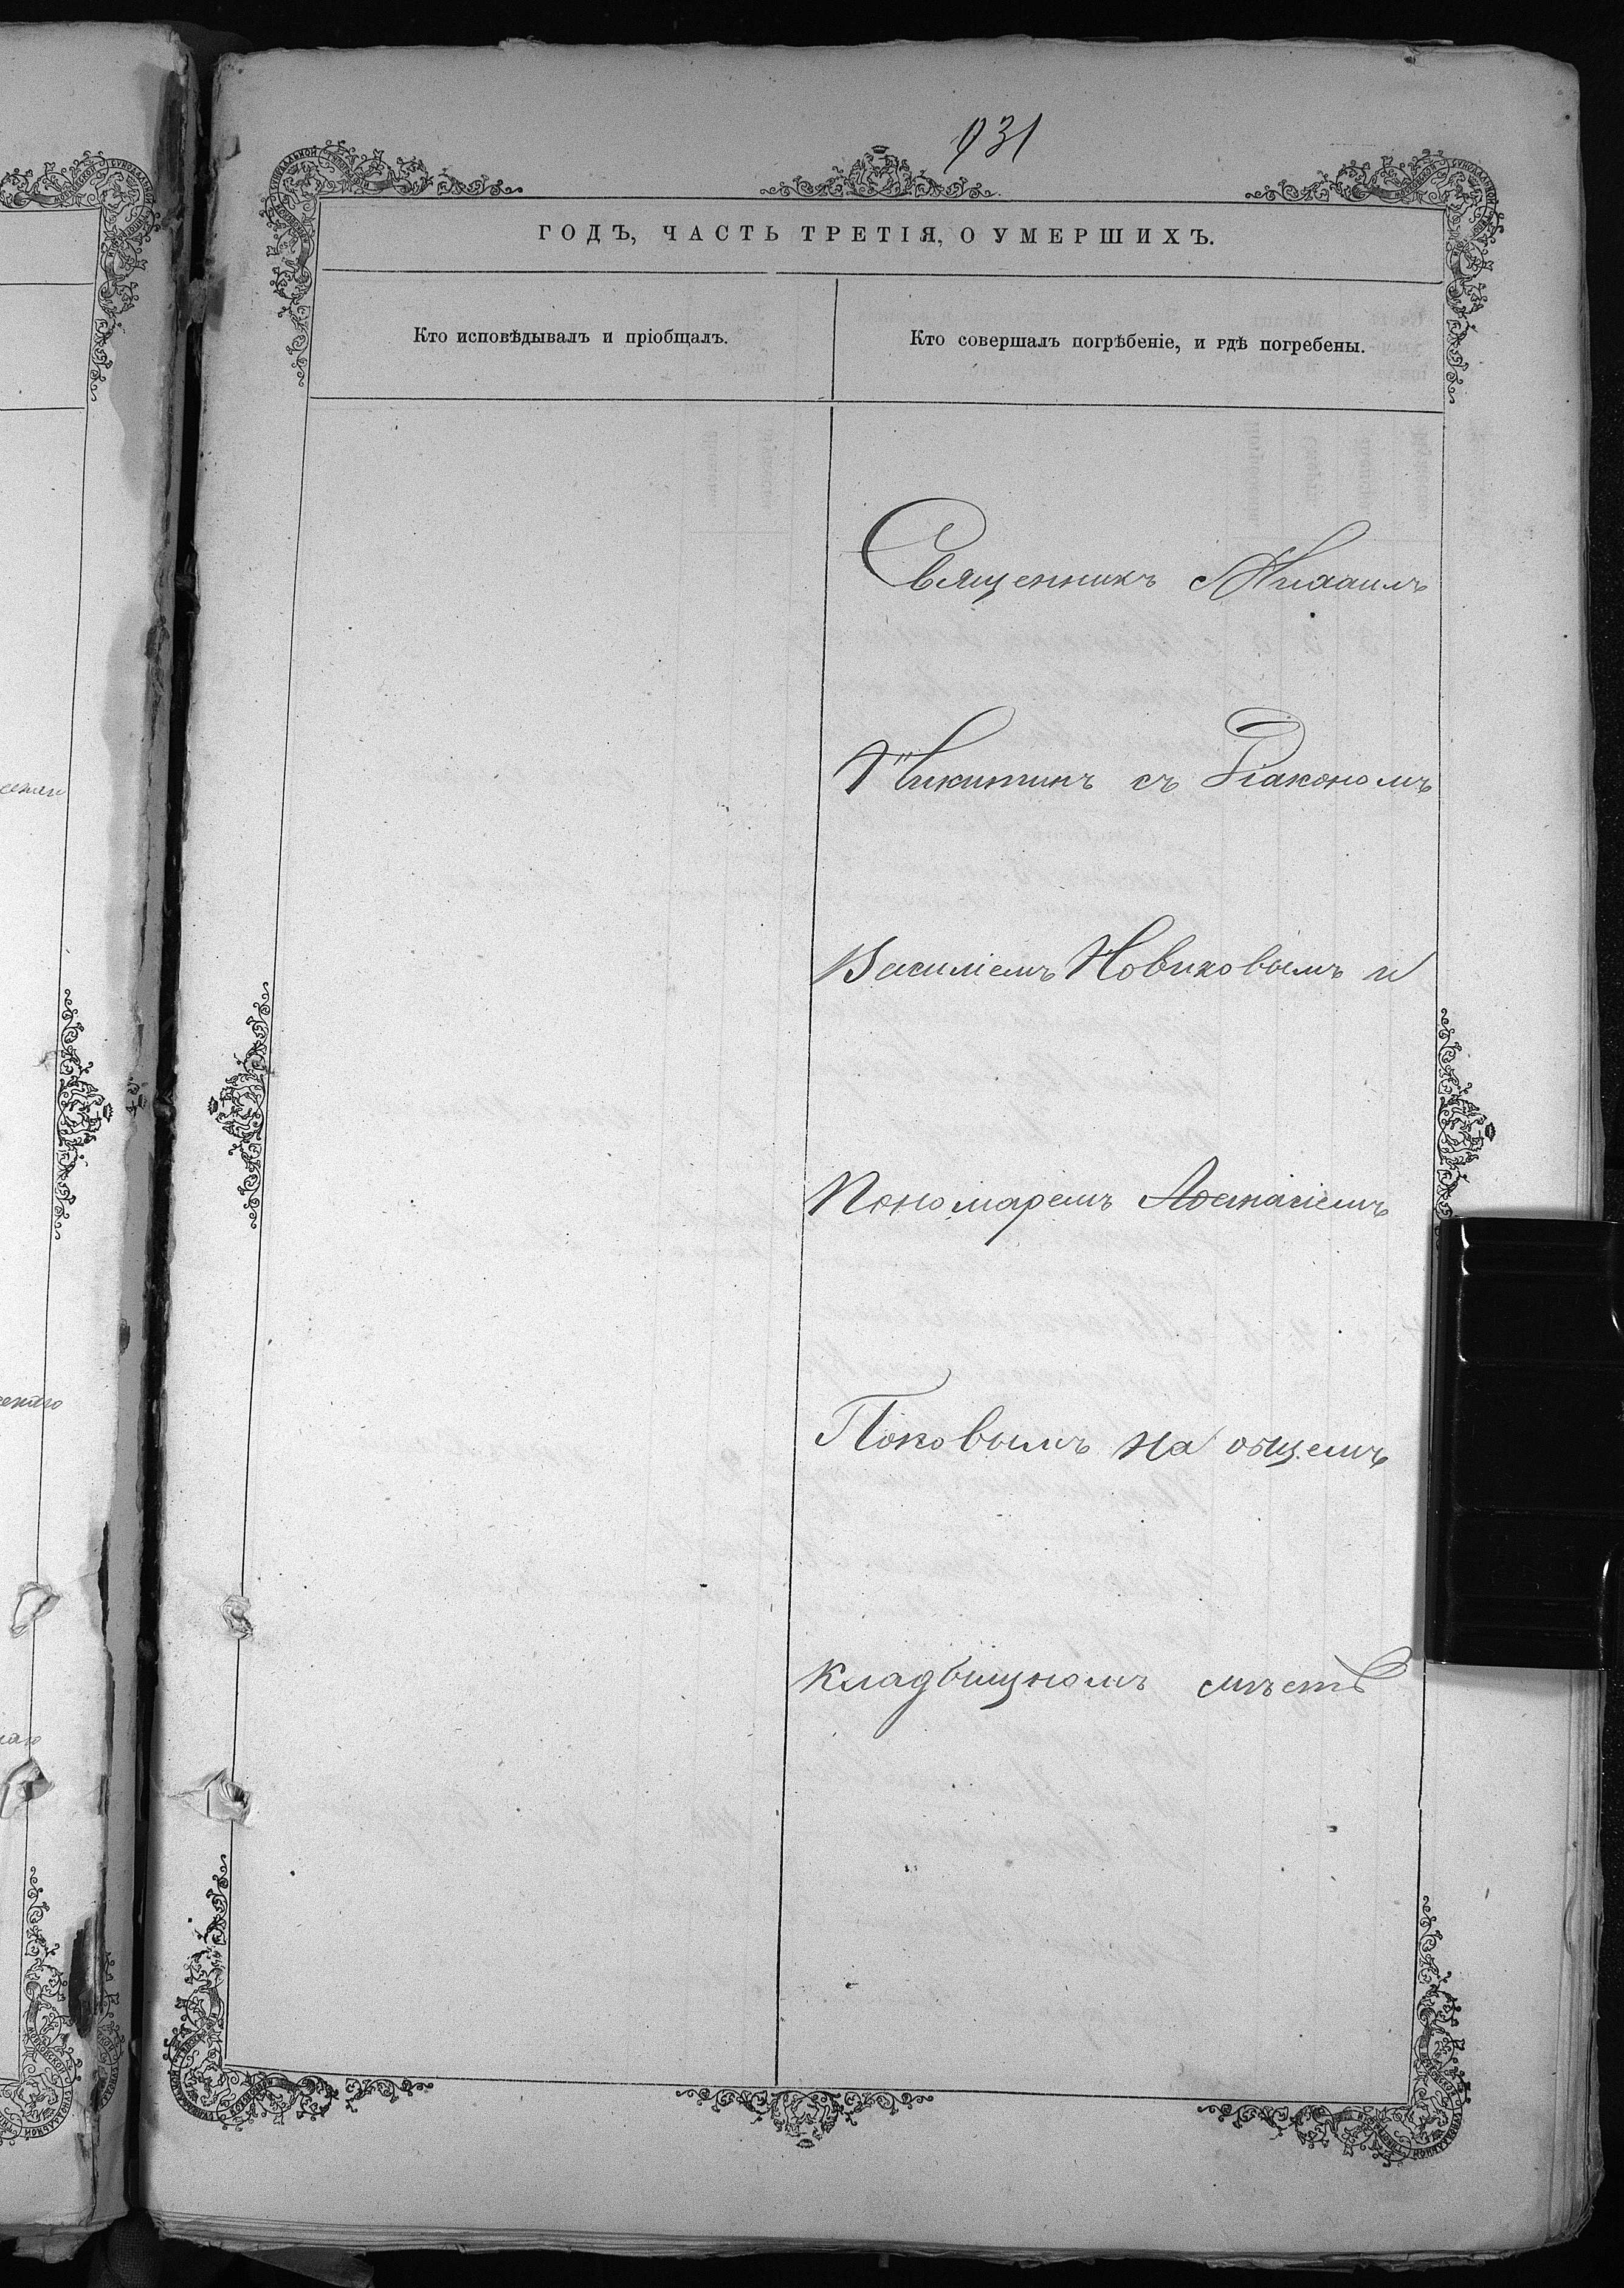 931
ГОДЪ, ЧАСТЬ ТРЕТІЯ, О УМЕРШИХЪ.
Кто исповѣдывалъ и пріобщалъ.
Кто совершалъ погрѣбеніе, и гдѣ погребены.
Священникъ Михаилъ
Никитинъ съ Діакономъ
Василіемъ Новиковымъ и
Пономаремъ Аѳанасіемъ
Поповымъ на общемъ
кладбищномъ мѣстѣ